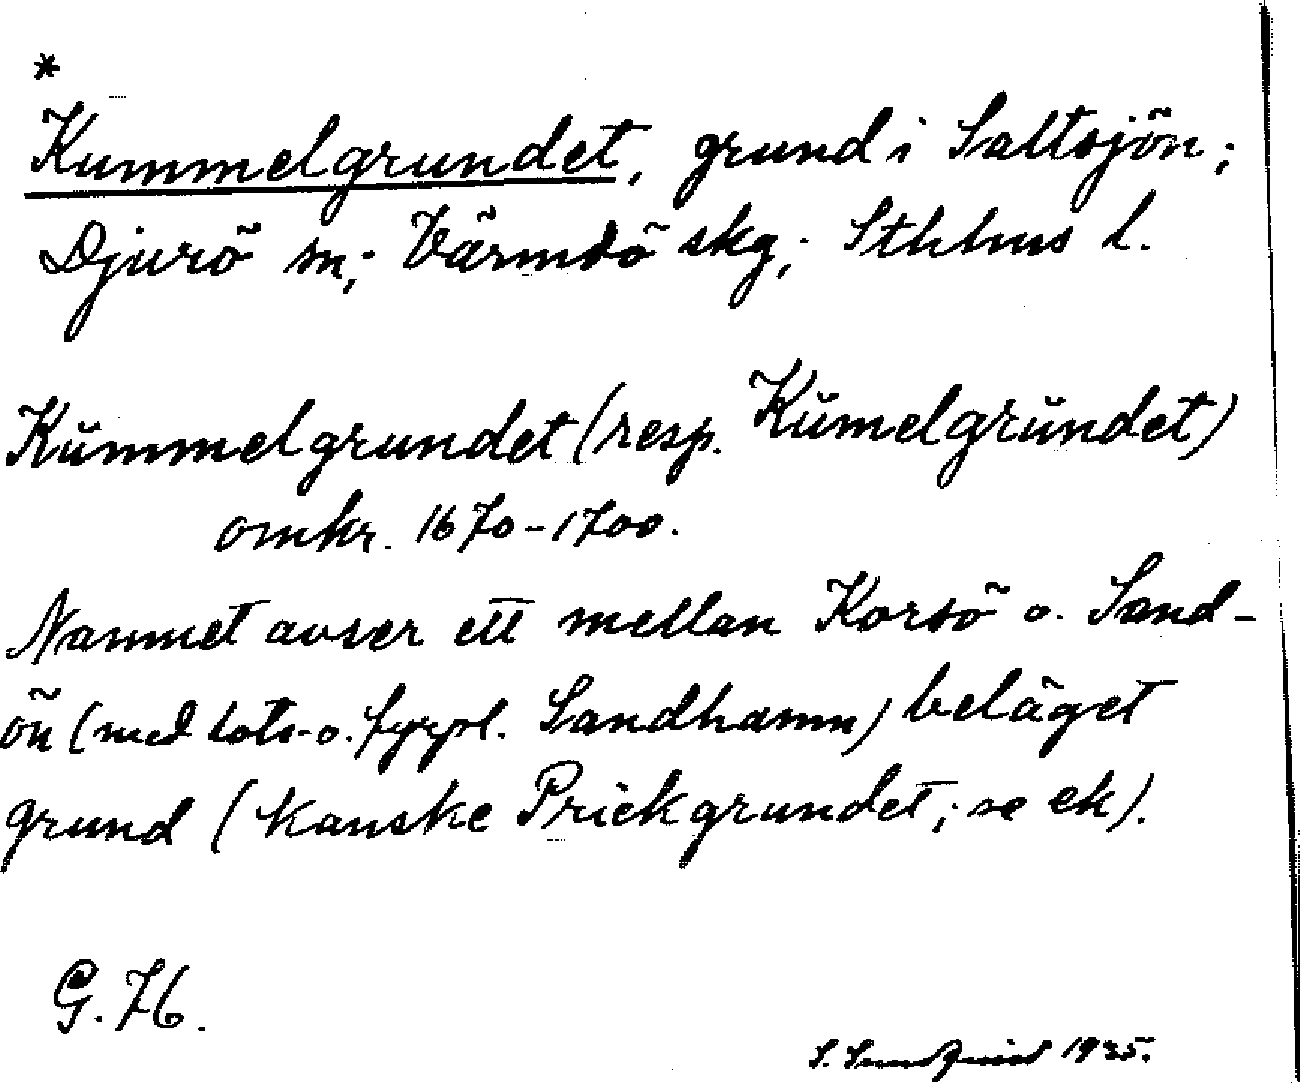 *
Kummelgrundet, grund i Saltsjön;
Djurö sn; Värmdö skg; Sthlms l.
Kŭmmelgrundet (resp. Kŭmelgrŭndet)
omkr. 1670-1700.
Namnet avser ett mellan Korsö o. Sand-
ön (med lots- o. fyrpl. Sandhamn) beläget
grund (kanske Prickgrundet; se ek).
G. 76.
S. 1935.